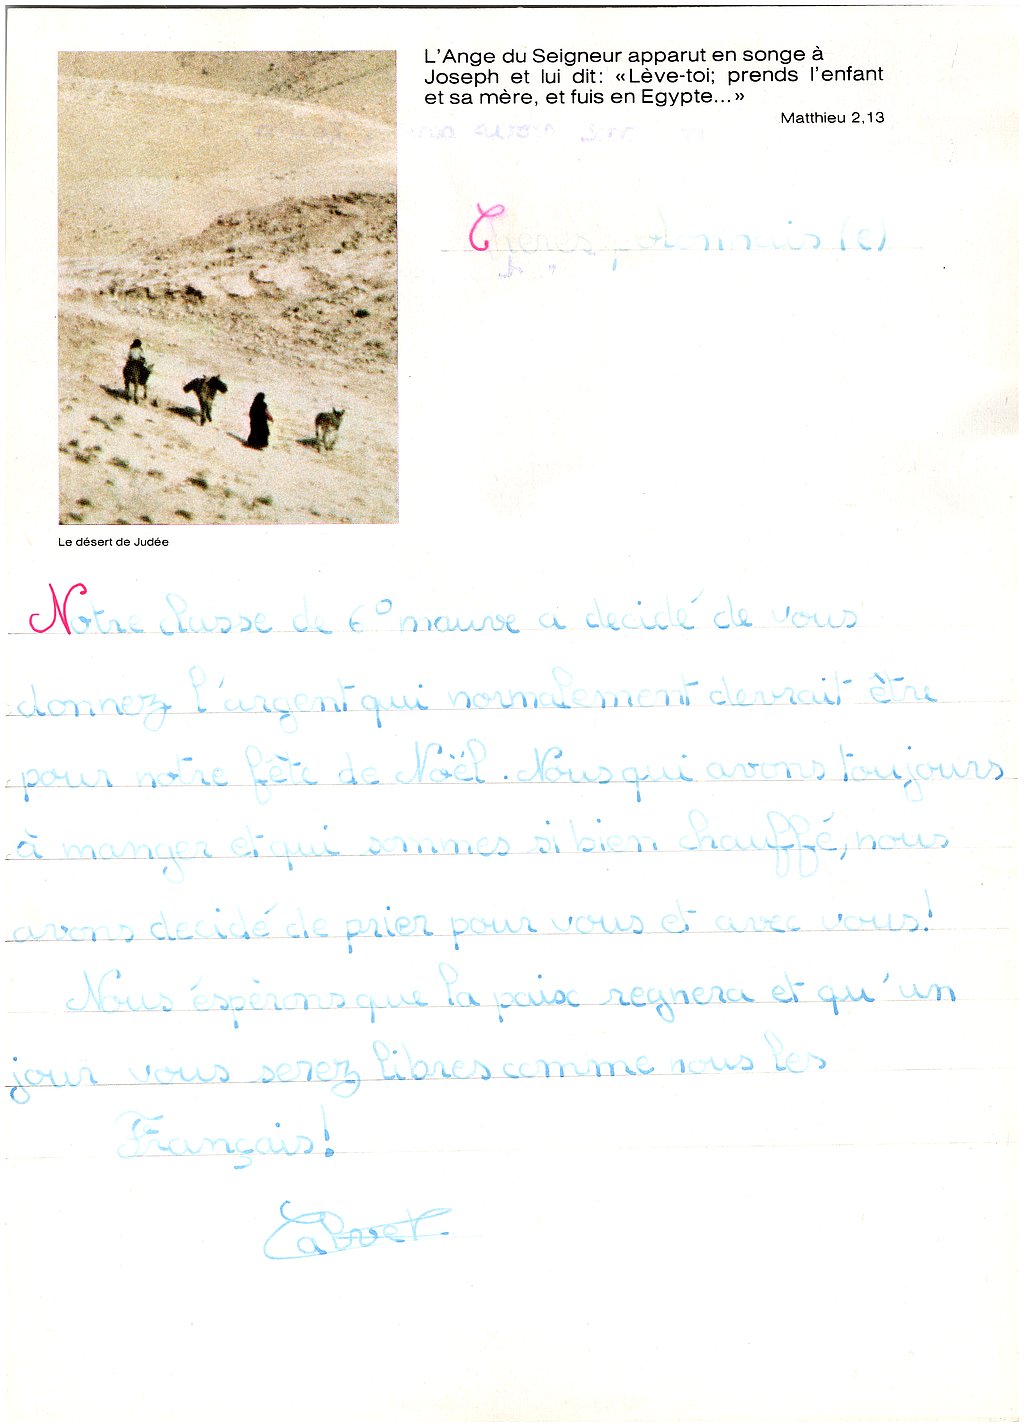 L'Ange du Seigneur apparut en songe à
Joseph et lui dit: «Lève-toi; prends l'enfant
et sa mère, et fuis en Egypte...»
Matthieu 2,13
Chères polonnais (e)
Le désert de Judée
Notre classe de 6° mauve a decidé de vous
donnez l'argent qui normalement devrait être
pour notre fête de Noël. Nous qui avons toujours
à manger et qui sommes si bien chauffé, nous
avons decidé de prier pour vous et avec vous!
Nous éspèrons que la paix regnera et qu'un
jour vous serez libres comme nous les
Français!
Calvet